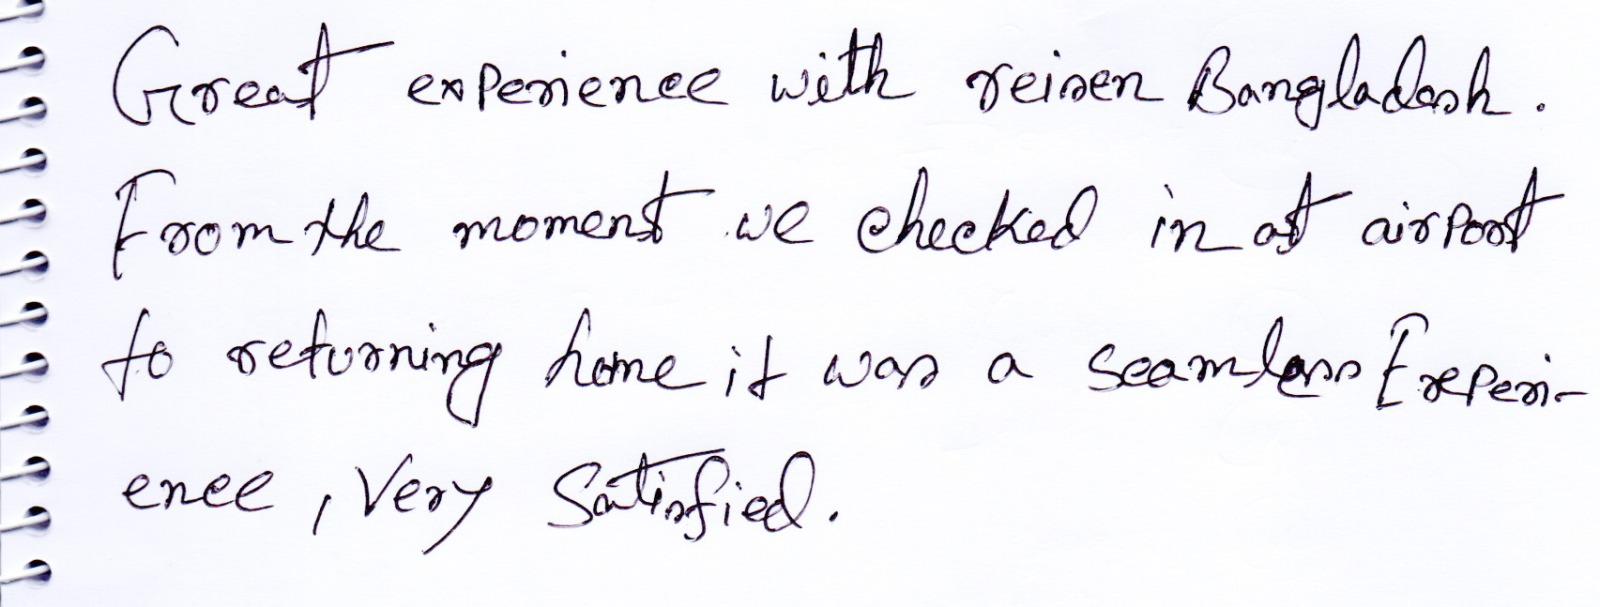 Great experience with reisen Bangladesh.
From the moment we checked in at airport
to returning home it was a seamless Experi-
ence, Very Satisfied.